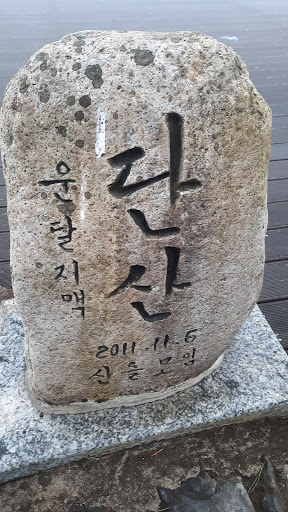 단산
운달지맥
2011.11.6
산들모임